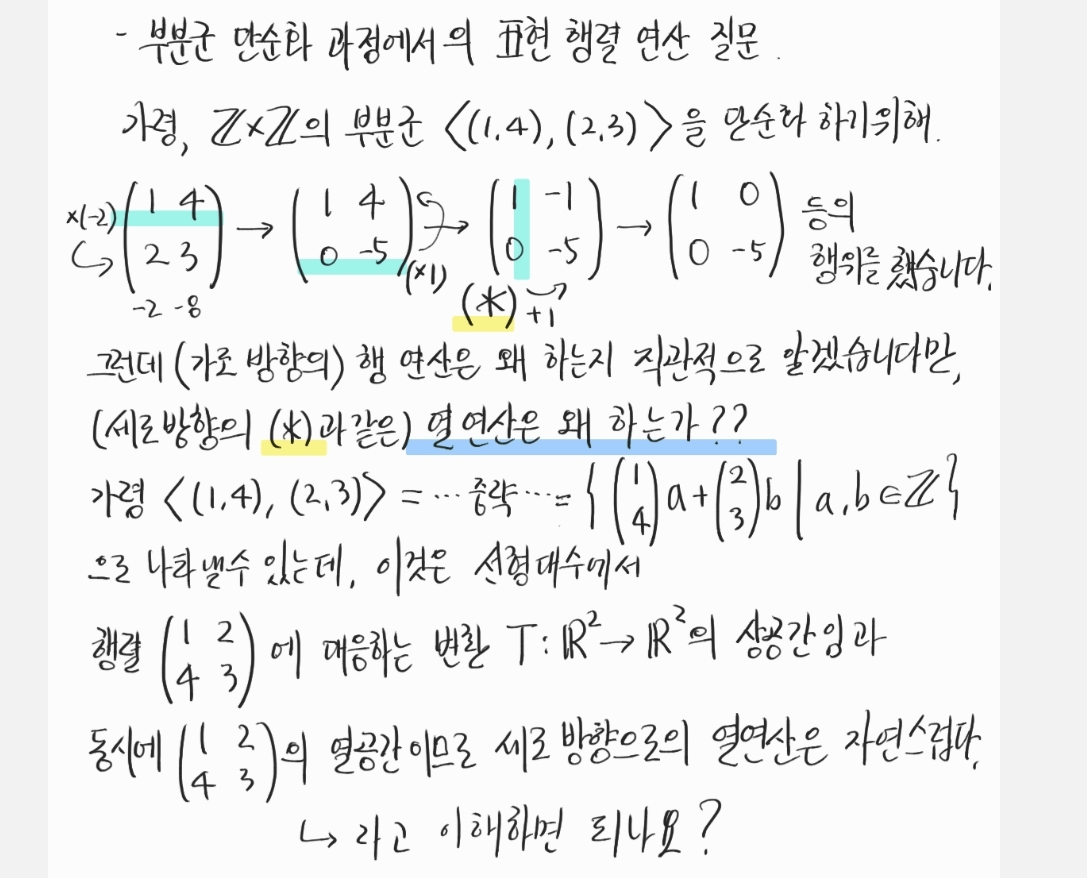 - 부분군 단순화 과정에서의 표현 행렬 연산 질문.
가령, ℤ×ℤ의 부분군 <(1,4), (2,3)>을 단순화 하기위해.
×(-2) (1 4 / 2 3) → (1 4 / 0 -5) (×1) → (1 -1 / 0 -5) → (1 0 / 0 -5) 등의
-2 -8 (*) +1 행위를 했습니다.
그런데 (가로 방향의) 행 연산은 왜 하는지 직관적으로 알겠습니다만,
(세로방향의 (*)과같은) 열연산은 왜 하는가??
가령 <(1,4), (2,3)> = … 중략 … = { (1 / 4)a + (2 / 3)b | a,b∈ℤ }
으로 나타낼수 있는데, 이것은 선형대수에서
행렬 (1 2 / 4 3)에 대응하는 변환 T: ℝ² → ℝ²의 상공간임과
동시에 (1 2 / 4 3)의 열공간이므로 세로 방향으로의 열연산은 자연스럽다.
↳ 라고 이해하면 되나요?